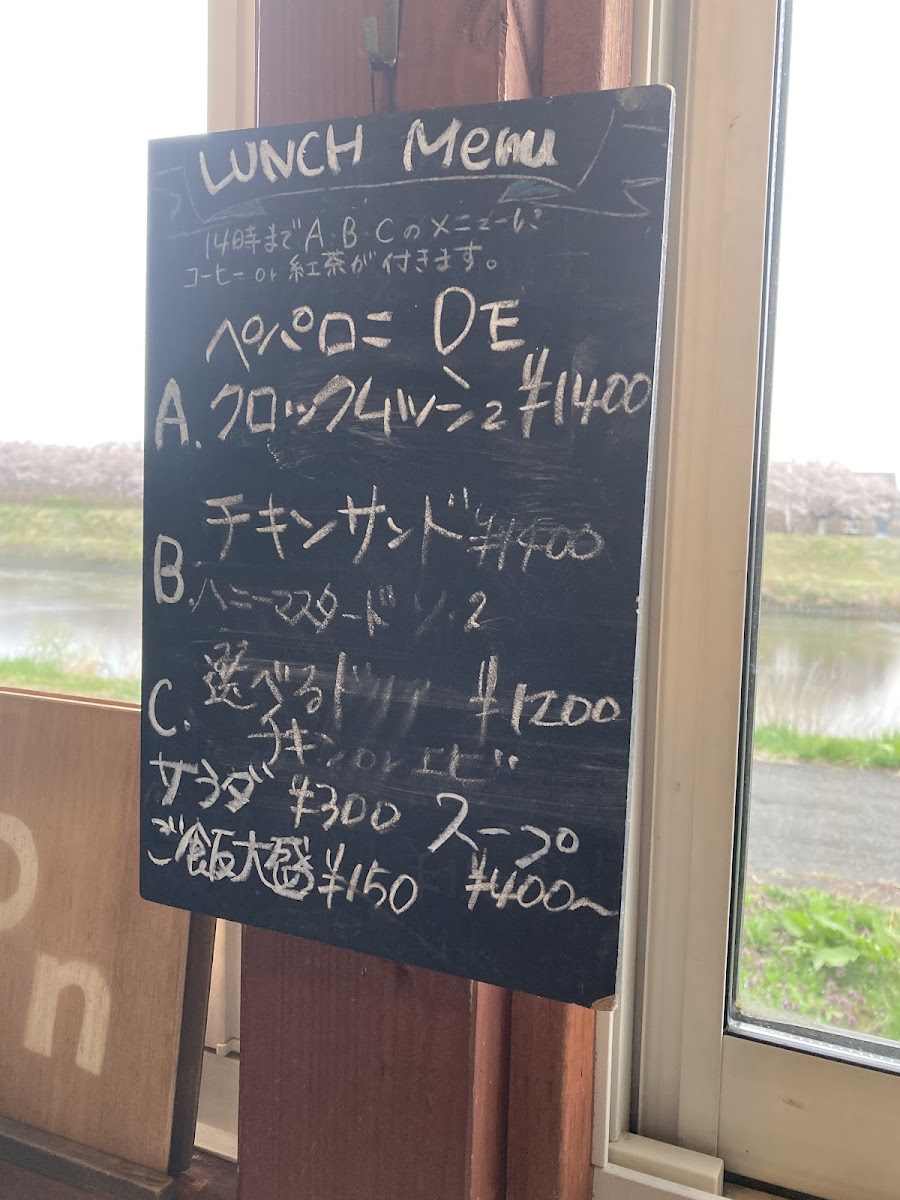 LUNCH Menu
14時までA・B・Cのメニューに
コーヒーor紅茶が付きます。
ペパロニ DE
A. クロックムッシュ ¥1400
チキンサンド ¥1400
B. ハニーマスタード
C. 選べる ¥1200
チキン or エビ
サラダ ¥300 スープ
ご飯大盛 ¥150 ¥400〜
n